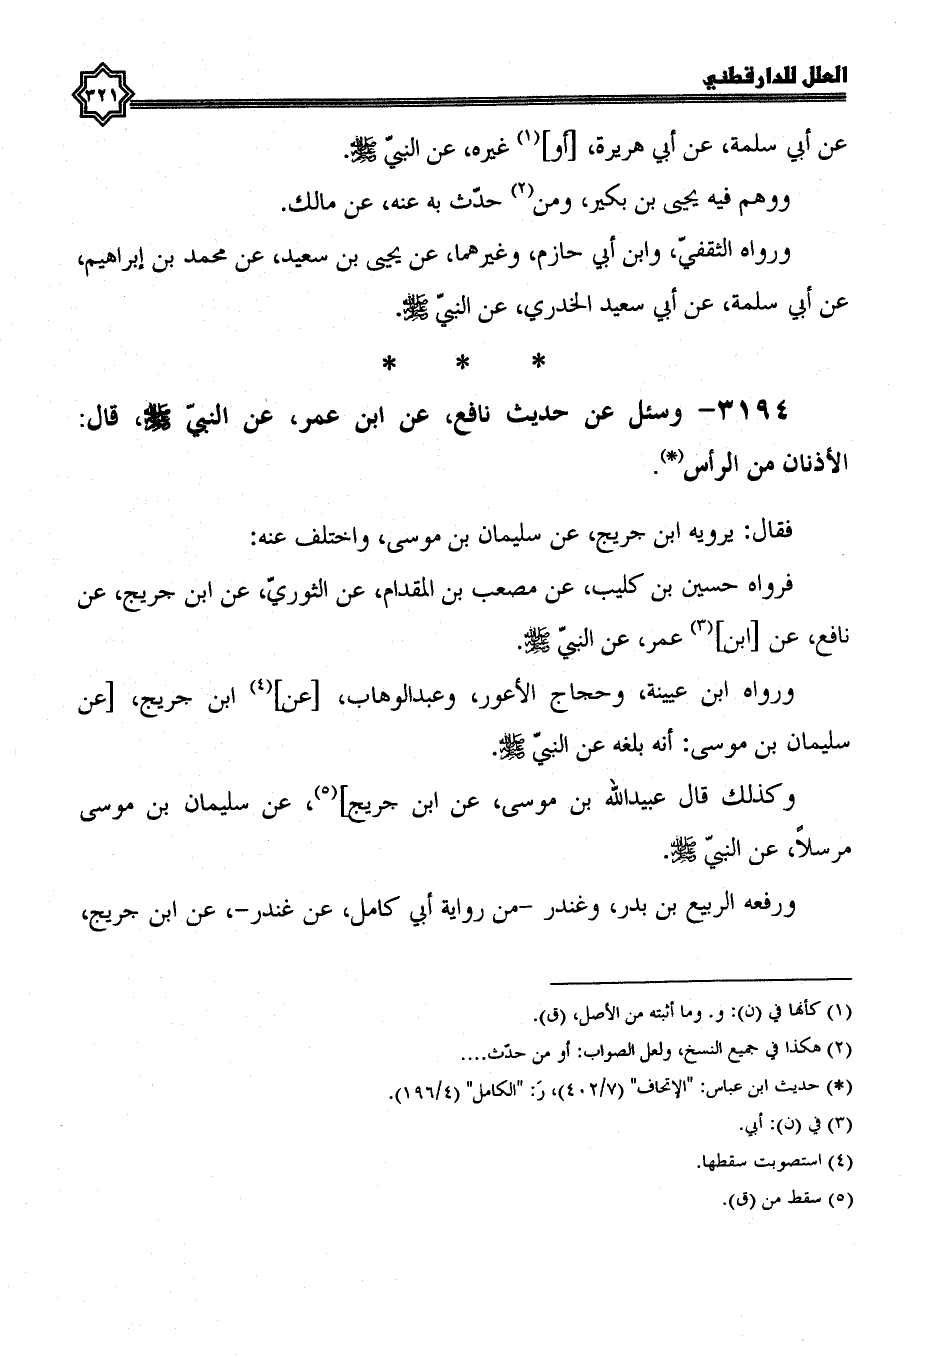 العلل للدارقطني
٣٢١
عن أبي سلمة، عن أبي هريرة، [أو](١) غيره، عن النبيّ ﷺ.
ووهم فيه يحيى بن بكير، ومن(٢) حدّث به عنه، عن مالك.
ورواه الثقفيّ، وابن أبي حازم، وغيرهما، عن يحيى بن سعيد، عن محمد بن إبراهيم،
عن أبي سلمة، عن أبي سعيد الخدري، عن النبيّ ﷺ.
* * *
٣١٩٤- وسئل عن حديث نافع، عن ابن عمر، عن النبيّ ﷺ، قال:
الأذنان من الرأس(*).
فقال: يرويه ابن جريج، عن سليمان بن موسى، واختلف عنه:
فرواه حسين بن كليب، عن مصعب بن المقدام، عن الثوريّ، عن ابن جريج، عن
نافع، عن [ابن](٣) عمر، عن النبيّ ﷺ.
ورواه ابن عيينة، وحجاج الأعور، وعبدالوهاب، [عن](٤) ابن جريج، [عن
سليمان بن موسى: أنه بلغه عن النبيّ ﷺ.
وكذلك قال عبيدالله بن موسى، عن ابن جريج](٥)، عن سليمان بن موسى
مرسلاً، عن النبيّ ﷺ.
ورفعه الربيع بن بدر، وغندر -من رواية أبي كامل، عن غندر-، عن ابن جريج،
(١) كأنها في (ن): و. وما أثبته من الأصل، (ق).
(٢) هكذا في جميع النسخ، ولعل الصواب: أو من حدّث....
(*) حديث ابن عباس: "الإتحاف" (٤٠٢/٧)، رَ: "الكامل" (١٩٦/٤).
(٣) في (ن): أبي.
(٤) استصوبت سقطها.
(٥) سقط من (ق).